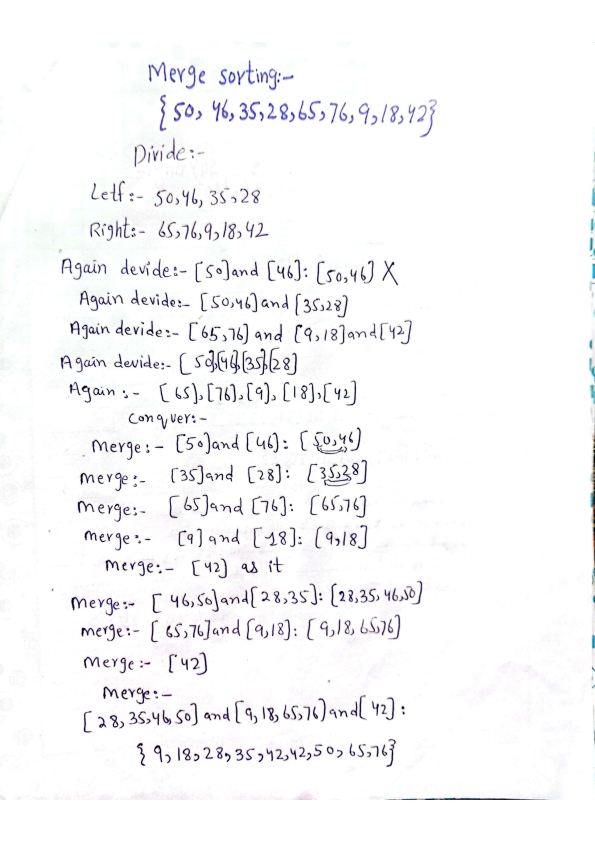 Merge sorting:-
{50, 46, 35, 28, 65, 76, 9, 18, 42}
Divide:-
Letf:- 50, 46, 35, 28
Right:- 65, 76, 9, 18, 42
Again devide:- [50] and [46]: [50, 46] X
Again devide:- [50, 46] and [35, 28]
Again devide:- [65, 76] and [9, 18] and [42]
Again devide:- [50], [46], [35], [28]
Again :- [65], [76], [9], [18], [42]
Conquer:-
Merge:- [50] and [46]: [50, 46]
merge:- [35] and [28]: [35, 28]
merge:- [65] and [76]: [65, 76]
merge:- [9] and [18]: [9, 18]
merge:- [42] as it
merge:- [46, 50] and [28, 35]: [28, 35, 46, 50]
merge:- [65, 76] and [9, 18]: [9, 18, 65, 76]
merge:- [42]
merge:-
[28, 35, 46, 50] and [9, 18, 65, 76] and [42]:
{9, 18, 28, 35, 42, 42, 50, 65, 76}